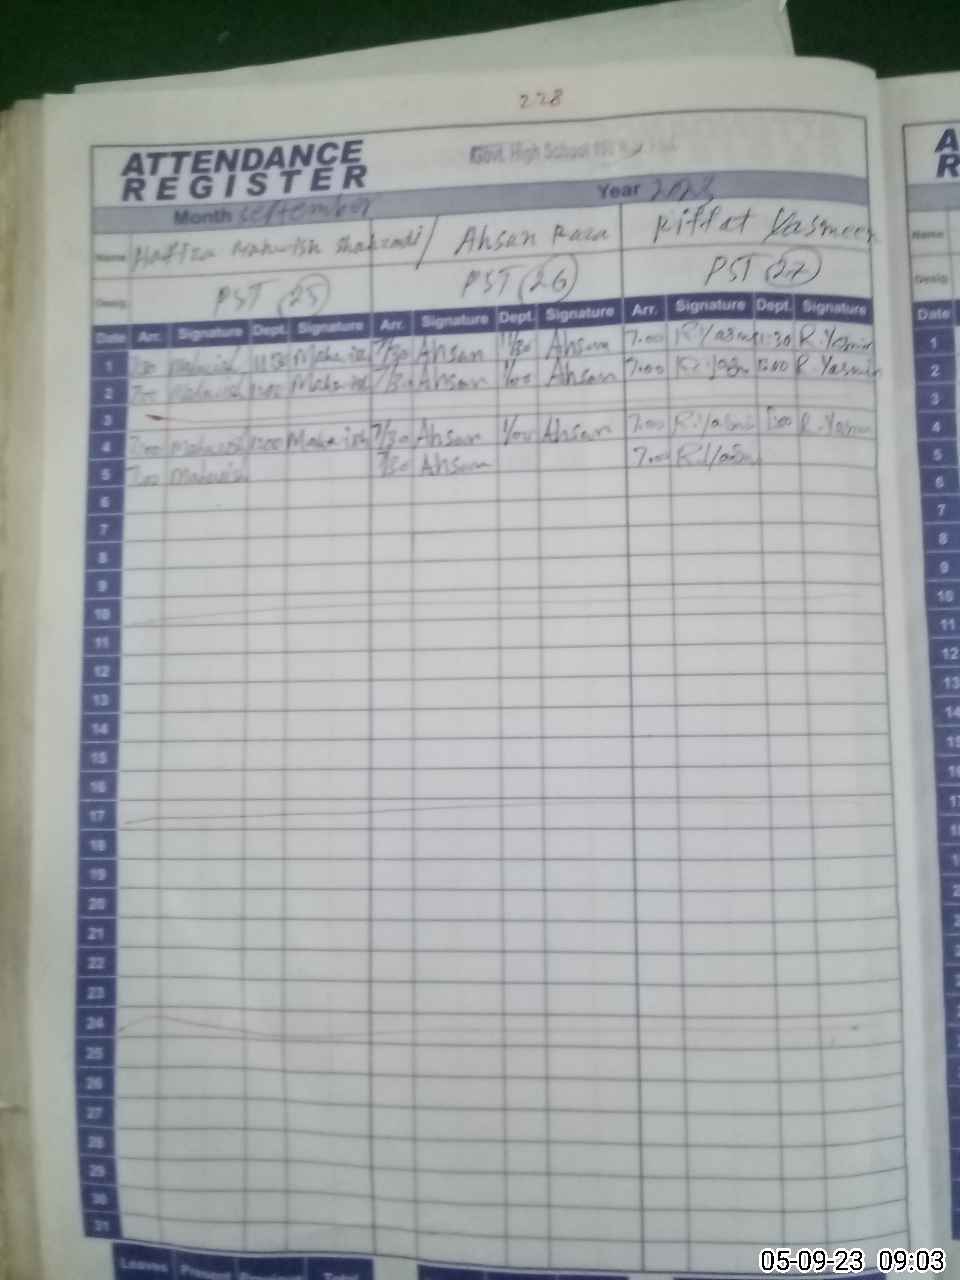 228
ATTENDANCE
REGISTER
Govt. High School
Month September Year
Name Hafiza Mahwish Shahzadi / Ahsan Raza Riffat Yasmeen
Desig. PST (25) PST (26) PST (27)
Date Arr. Signature Dept. Signature Arr. Signature Dept. Signature Arr. Signature Dept. Signature
1 Mahwish 11:30 Mahwish 7/30 Ahsan 11/30 Ahsan 7.00 R.Yasmin 11:30 R.Yasmin
2 7:00 Mahwish Mahwish 7/30 Ahsan 1/00 Ahsan 7.00 R.Yasmin R.Yasmin
3
4 7:00 Mahwish Mahwish 7/30 Ahsan 1/00 Ahsan 7.00 R.Yasmin R.Yasmin
5 7:00 Mahwish 7/30 Ahsan 7.00 R.Yasmin
6
7
8
9
10
11
12
13
14
15
16
17
18
19
20
21
22
23
24
25
26
27
28
29
30
31
Leaves Present Previous Total
A
R
Name
Desig.
Date
1
2
3
4
5
6
7
8
9
10
11
12
13
14
05-09-23 09:03